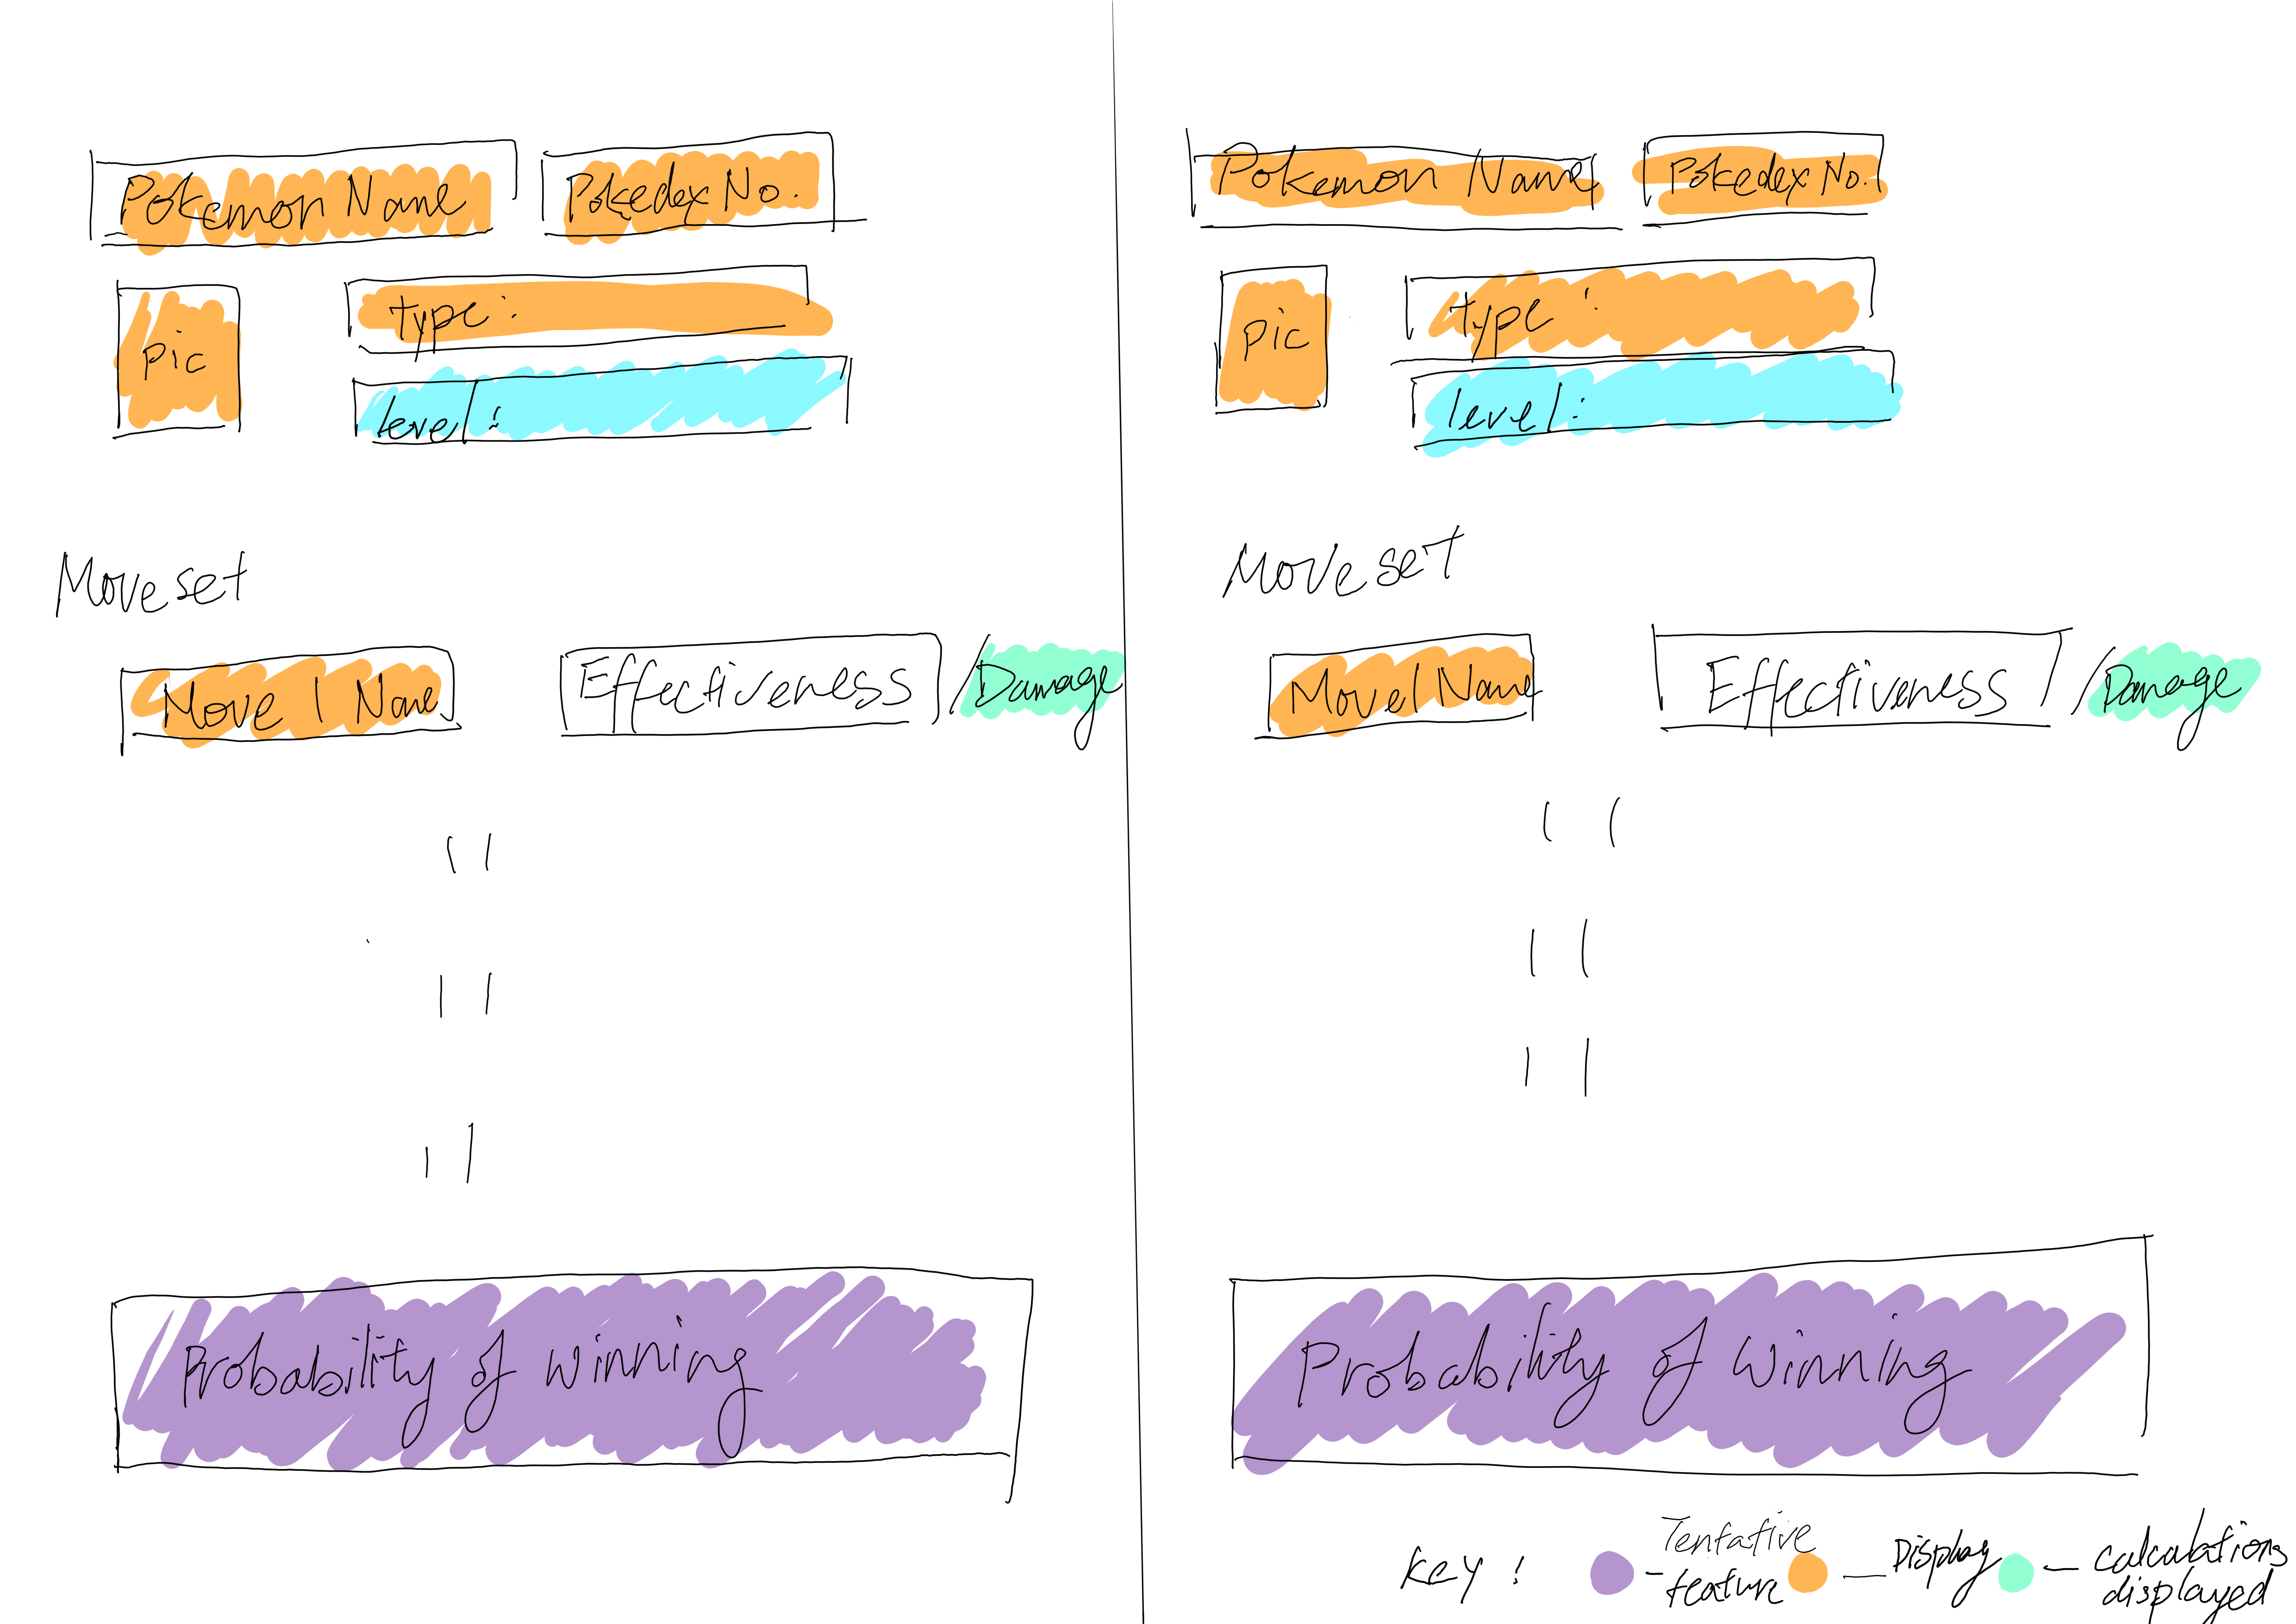 Pokemon Name Pokedex No.
Pic
type:
level:
Moveset
Move 1 Name Effectiveness / Damage
"
"
"
Probability of winning
Pokemon Name Pokedex No.
Pic
type:
level:
Moveset
Move 1 Name Effectiveness / Damage
"
"
"
Probability of winning
Key: - Tentative feature - Display - calculations displayed